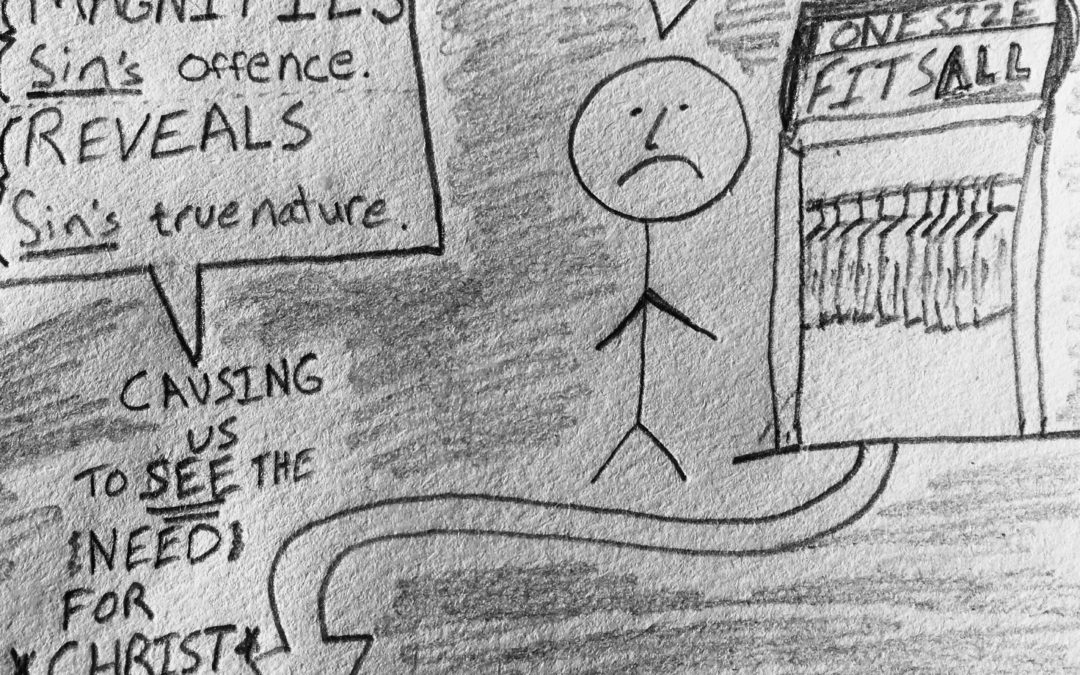 MAGNIFIES
Sin's offence.
REVEALS
Sin's true nature.
CAUSING
US
TO SEE THE
NEED
FOR
*CHRIST*
ONE SIZE
FITS ALL